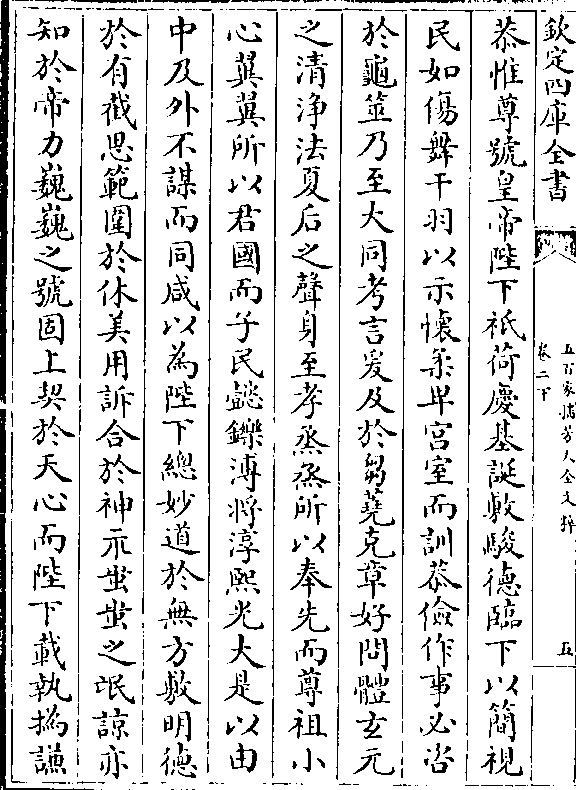 欽定四庫全書
五百家播芳大全文粹
卷二下
五
恭惟尊號皇帝陛下祇荷慶基誕敷駿德臨下以簡視
民如傷舞干羽以示懷柔卑宮室而訓恭儉作事必咨
於龜筮乃至大同考言爰及於芻蕘克章好問體玄元
之清浄法夏后之聲身至孝烝烝所以奉先而尊祖小
心翼翼所以君國而子民懿鑠溥將淳熙光大是以由
中及外不謀而同咸以為陛下總妙道於無方敷明德
於有截思範圍於休美用訴合於神示蚩蚩之氓諒亦
知於帝力巍巍之號固上契於天心而陛下載執撝謙